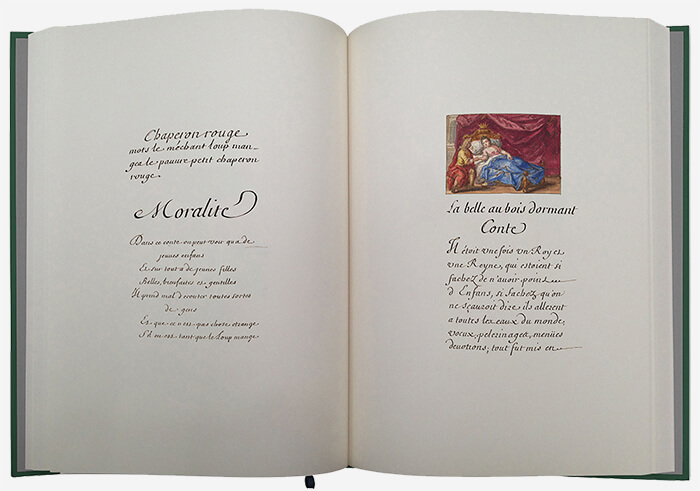 Chaperon rouge
mots le méchant loup man-
gea le pauure petit chaperon
rouge.
Moralité
Dans ce conte on peut voir qu a de
jeunes enfans
Et sur tout a de jeunes filles
Belles, bienfaites et gentilles
Il prend mal d ecouter toutes sortes
de gens
Et que ce n est pas chose etrange
S'il en est tant que le Loup mange
La belle au bois dormant
Conte
Il étoit vne fois vn Roy et
vne Reyne, qui estoient si
fachez de n'auoir point
d Enfans, si fachez qu'on
ne sçauroit dire; ils allerent
a toutes les eaux du monde,
vœux, pelerinages, menües
deuotions; tout fut mis en